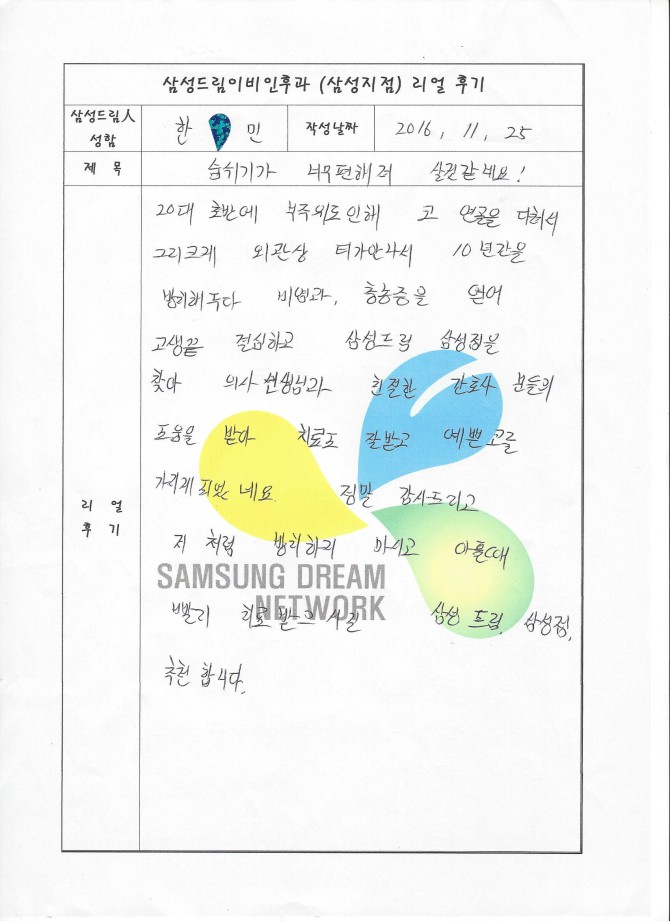 삼성드림이비인후과 (삼성지점) 리얼 후기
삼성드림人 성함
한 민
작성날짜
2016, 11, 25
제 목
숨쉬기가 너무편해져 살것같네요!
리 얼 후 기
20대 초반에 부주의로인해 코 연골을 다쳐서
그리크게 외관상 티가안나서 10년간을
방치해두다 비염과, 축농증을 얻어
고생끝 결심하고 삼성드림 삼성점을
찾아 의사선생님과 친절한 간호사 분들의
도움을 받아 치료도 잘받고 예쁜코를
가지게 되었네요. 정말 감사드리고
저 처럼 방치하지 마시고 아플때
SAMSUNG DREAM
NETWORK
빨리 치료 받으시길 삼성 드림, 삼성점,
추천 합니다.